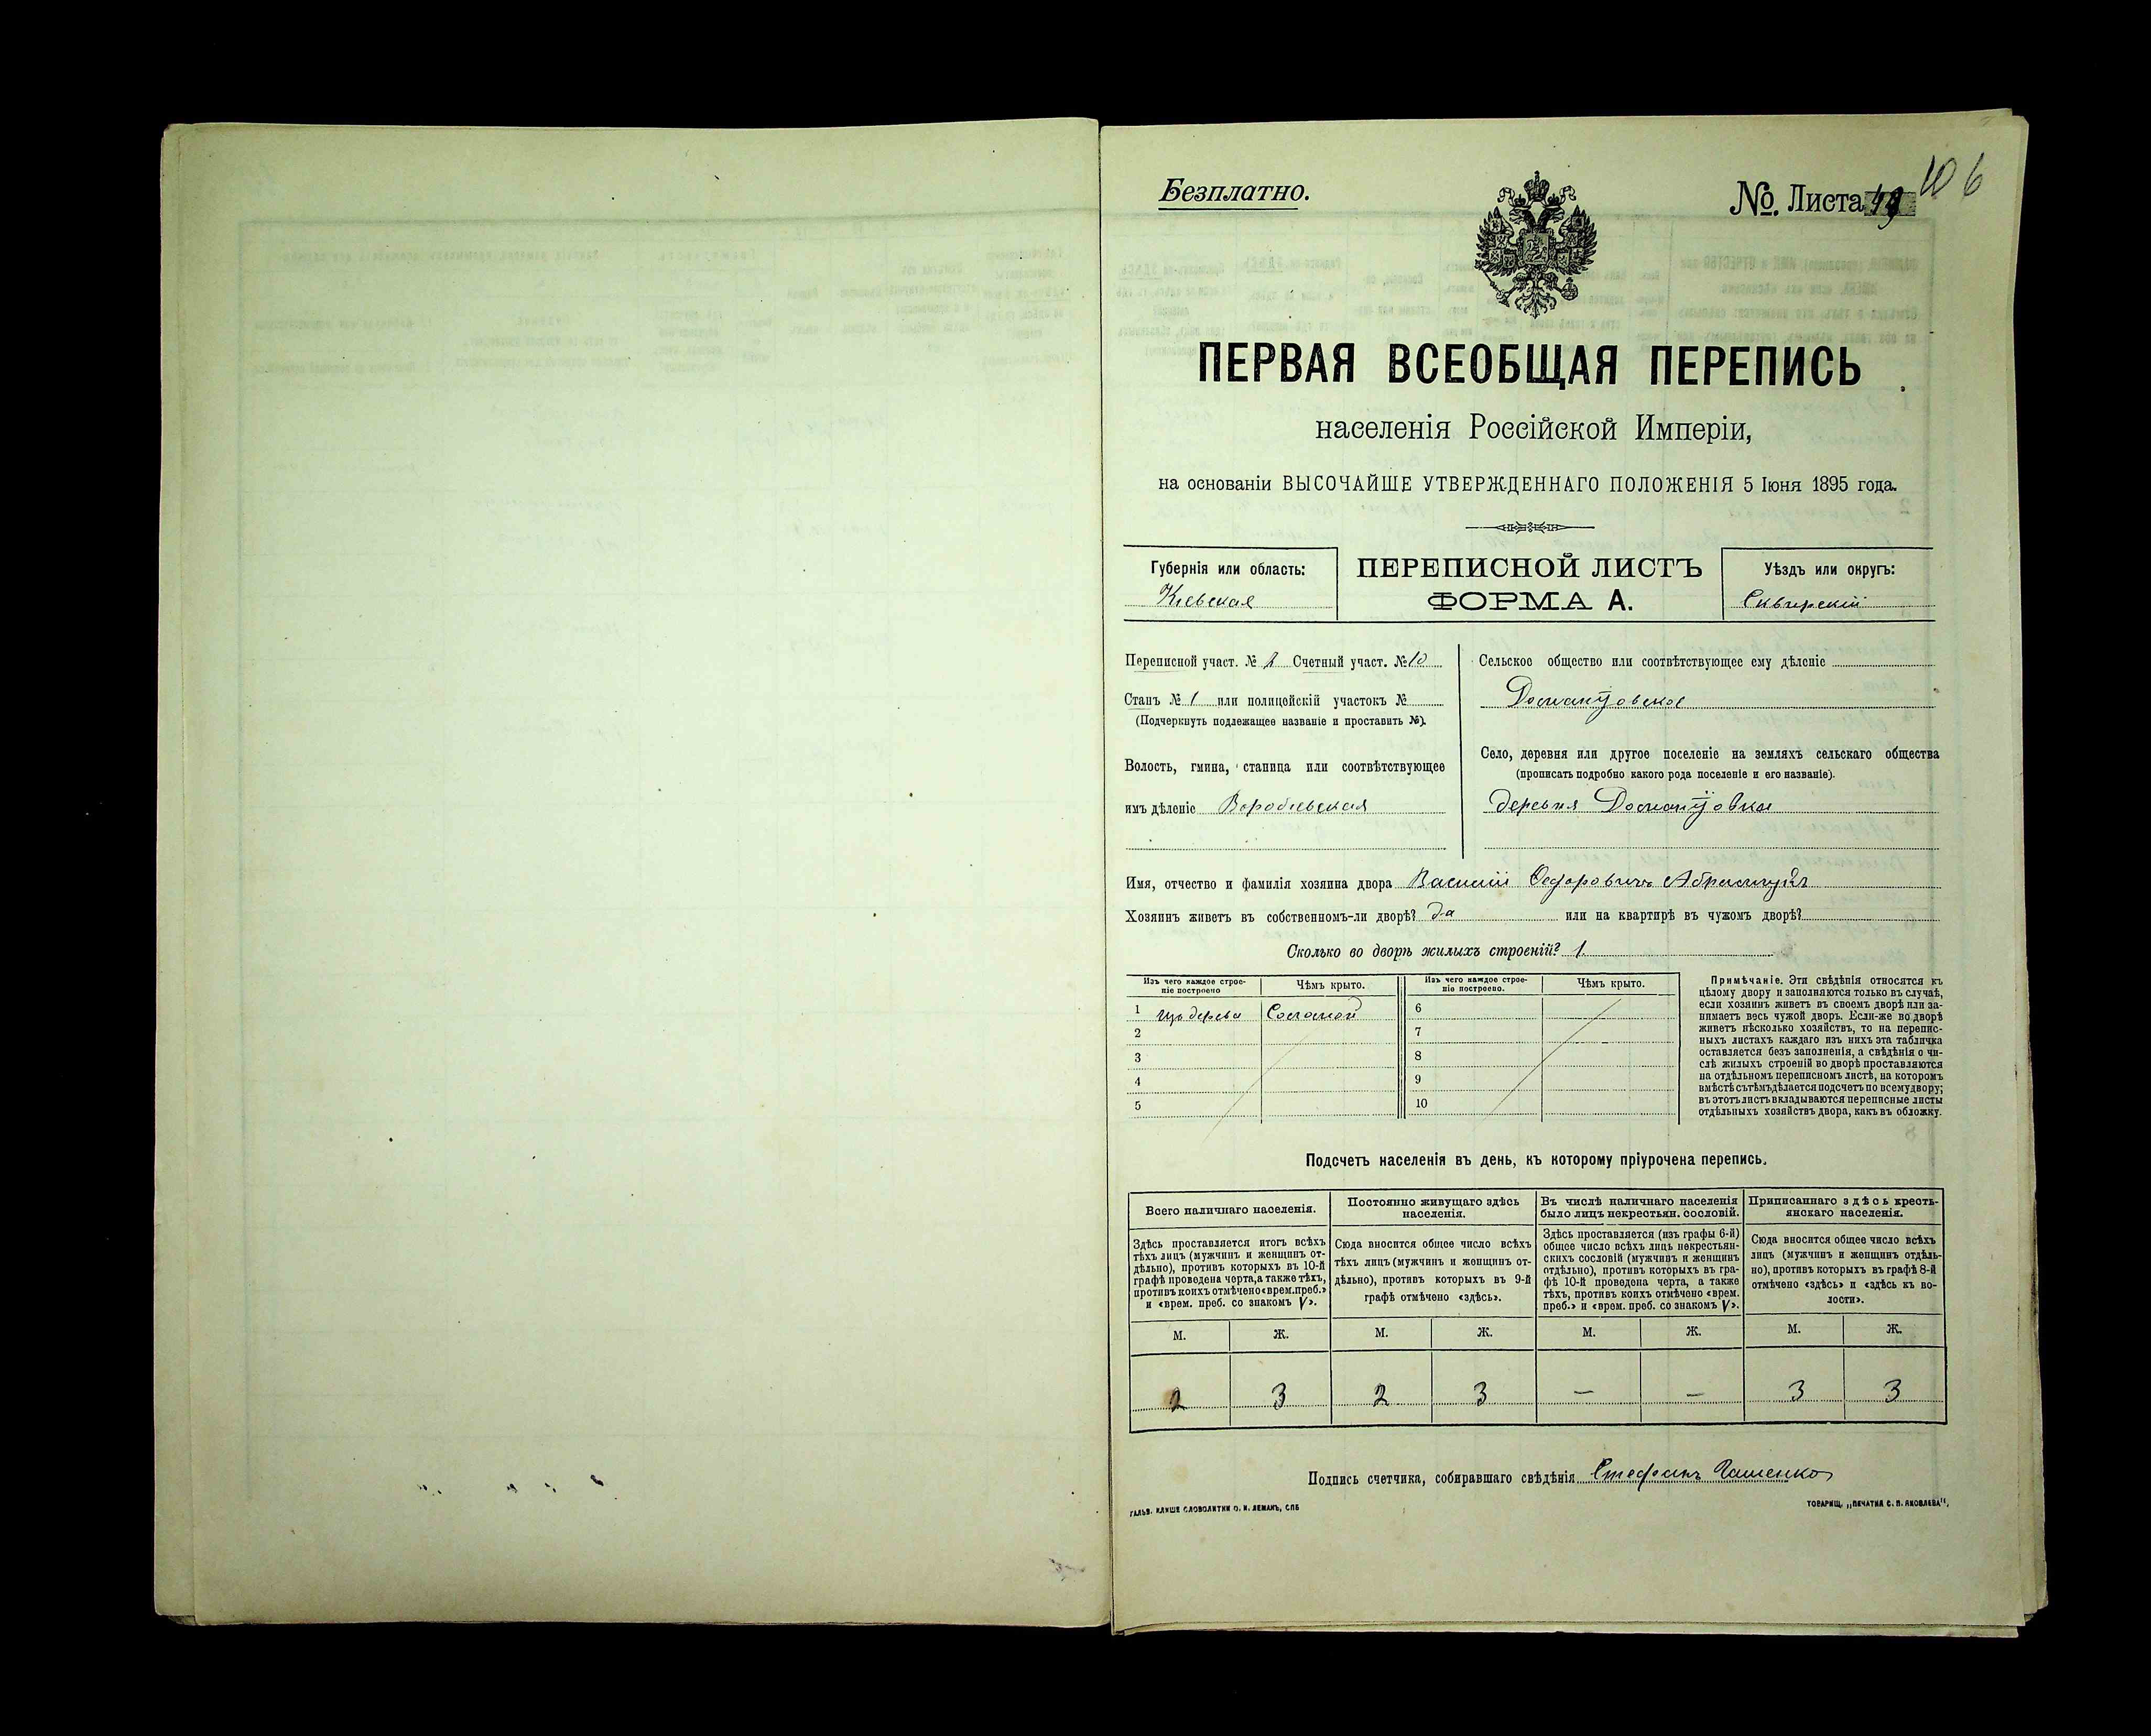 Безплатно.
№. Листа 49
106
ПЕРВАЯ ВСЕОБЩАЯ ПЕРЕПИСЬ
населенія Россійской Имперіи,
на основаніи ВЫСОЧАЙШЕ УТВЕРЖДЕННАГО ПОЛОЖЕНІЯ 5 Іюня 1895 года.
Губернія или область:
Кіевская
ПЕРЕПИСНОЙ ЛИСТЪ
ФОРМА А.
Уѣздъ или округъ:
Сквирскій
Переписной участ. № 2 Счетный участ. № 10
Станъ № 1 или полицейскій участокъ №
(Подчеркнуть подлежащее названіе и проставить №).
Волость, гмина, станица или соотвѣтствующее
имъ дѣленіе
Сельское общество или соотвѣтствующее ему дѣленіе
Село, деревня или другое поселеніе на земляхъ сельскаго общества
(прописать подробно какого рода поселеніе и его названіе).
деревня
Имя, отчество и фамилія хозяина двора Василій Федоровичъ
Хозяинъ живетъ въ собственномъ-ли дворѣ? да или на квартирѣ въ чужомъ дворѣ?
Сколько во дворѣ жилыхъ строеній? 1.
Изъ чего каждое строе-
ніе построено
Чѣмъ крыто.
1 изъ дерева Соломой
2
3
4
5
Изъ чего каждое строе-
ніе построено.
Чѣмъ крыто.
6
7
8
9
10
Примѣчаніе. Эти свѣдѣнія относятся къ
цѣлому двору и заполняются только въ случаѣ,
если хозяинъ живетъ въ своемъ дворѣ или за-
нимаетъ весь чужой дворъ. Если-же во дворѣ
живетъ нѣсколько хозяйствъ, то на перепис-
ныхъ листахъ каждаго изъ нихъ эта табличка
оставляется безъ заполненія, а свѣдѣнія о чи-
слѣ жилыхъ строеній во дворѣ проставляются
на отдѣльномъ переписномъ листѣ, на которомъ
вмѣстѣ съ тѣмъ дѣлается подсчетъ по всему двору;
въ этотъ листъ вкладываются переписные листы
отдѣльныхъ хозяйствъ двора, какъ въ обложку.
Подсчетъ населенія въ день, къ которому пріурочена перепись.
Всего наличнаго населенія.
Здѣсь проставляется итогъ всѣхъ
тѣхъ лицъ (мужчинъ и женщинъ от-
дѣльно), противъ которыхъ въ 10-й
графѣ проведена черта, а также тѣхъ,
противъ коихъ отмѣчено «врем. преб.»
и «врем. преб. со знакомъ V».
Постоянно живущаго здѣсь
населенія.
Сюда вносится общее число всѣхъ
тѣхъ лицъ (мужчинъ и женщинъ от-
дѣльно), противъ которыхъ въ 9-й
графѣ отмѣчено «здѣсь».
Въ числѣ наличнаго населенія
было лицъ некрестьян. сословій.
Здѣсь проставляется (изъ графы 6-й)
общее число всѣхъ лицъ некрестьян-
скихъ сословій (мужчинъ и женщинъ
отдѣльно), противъ которыхъ въ гра-
фѣ 10-й проведена черта, а также
тѣхъ, противъ коихъ отмѣчено «врем.
преб.» и «врем. преб. со знакомъ V».
Приписаннаго здѣсь кресть-
янскаго населенія.
Сюда вносится общее число всѣхъ
лицъ (мужчинъ и женщинъ отдѣль-
но), противъ которыхъ въ графѣ 8-й
отмѣчено «здѣсь» и «здѣсь къ во-
лости».
М. Ж. М. Ж. М. Ж. М. Ж.
2 3 2 3 — — 3 3
Подпись счетчика, собиравшаго свѣдѣнія Стефанъ
ГАЛЬВ. КЛИШЕ СЛОВОЛИТНИ О. И. ЛЕМАНЪ, СПБ
ТОВАРИЩ. „ПЕЧАТНЯ С. П. ЯКОВЛЕВА“,